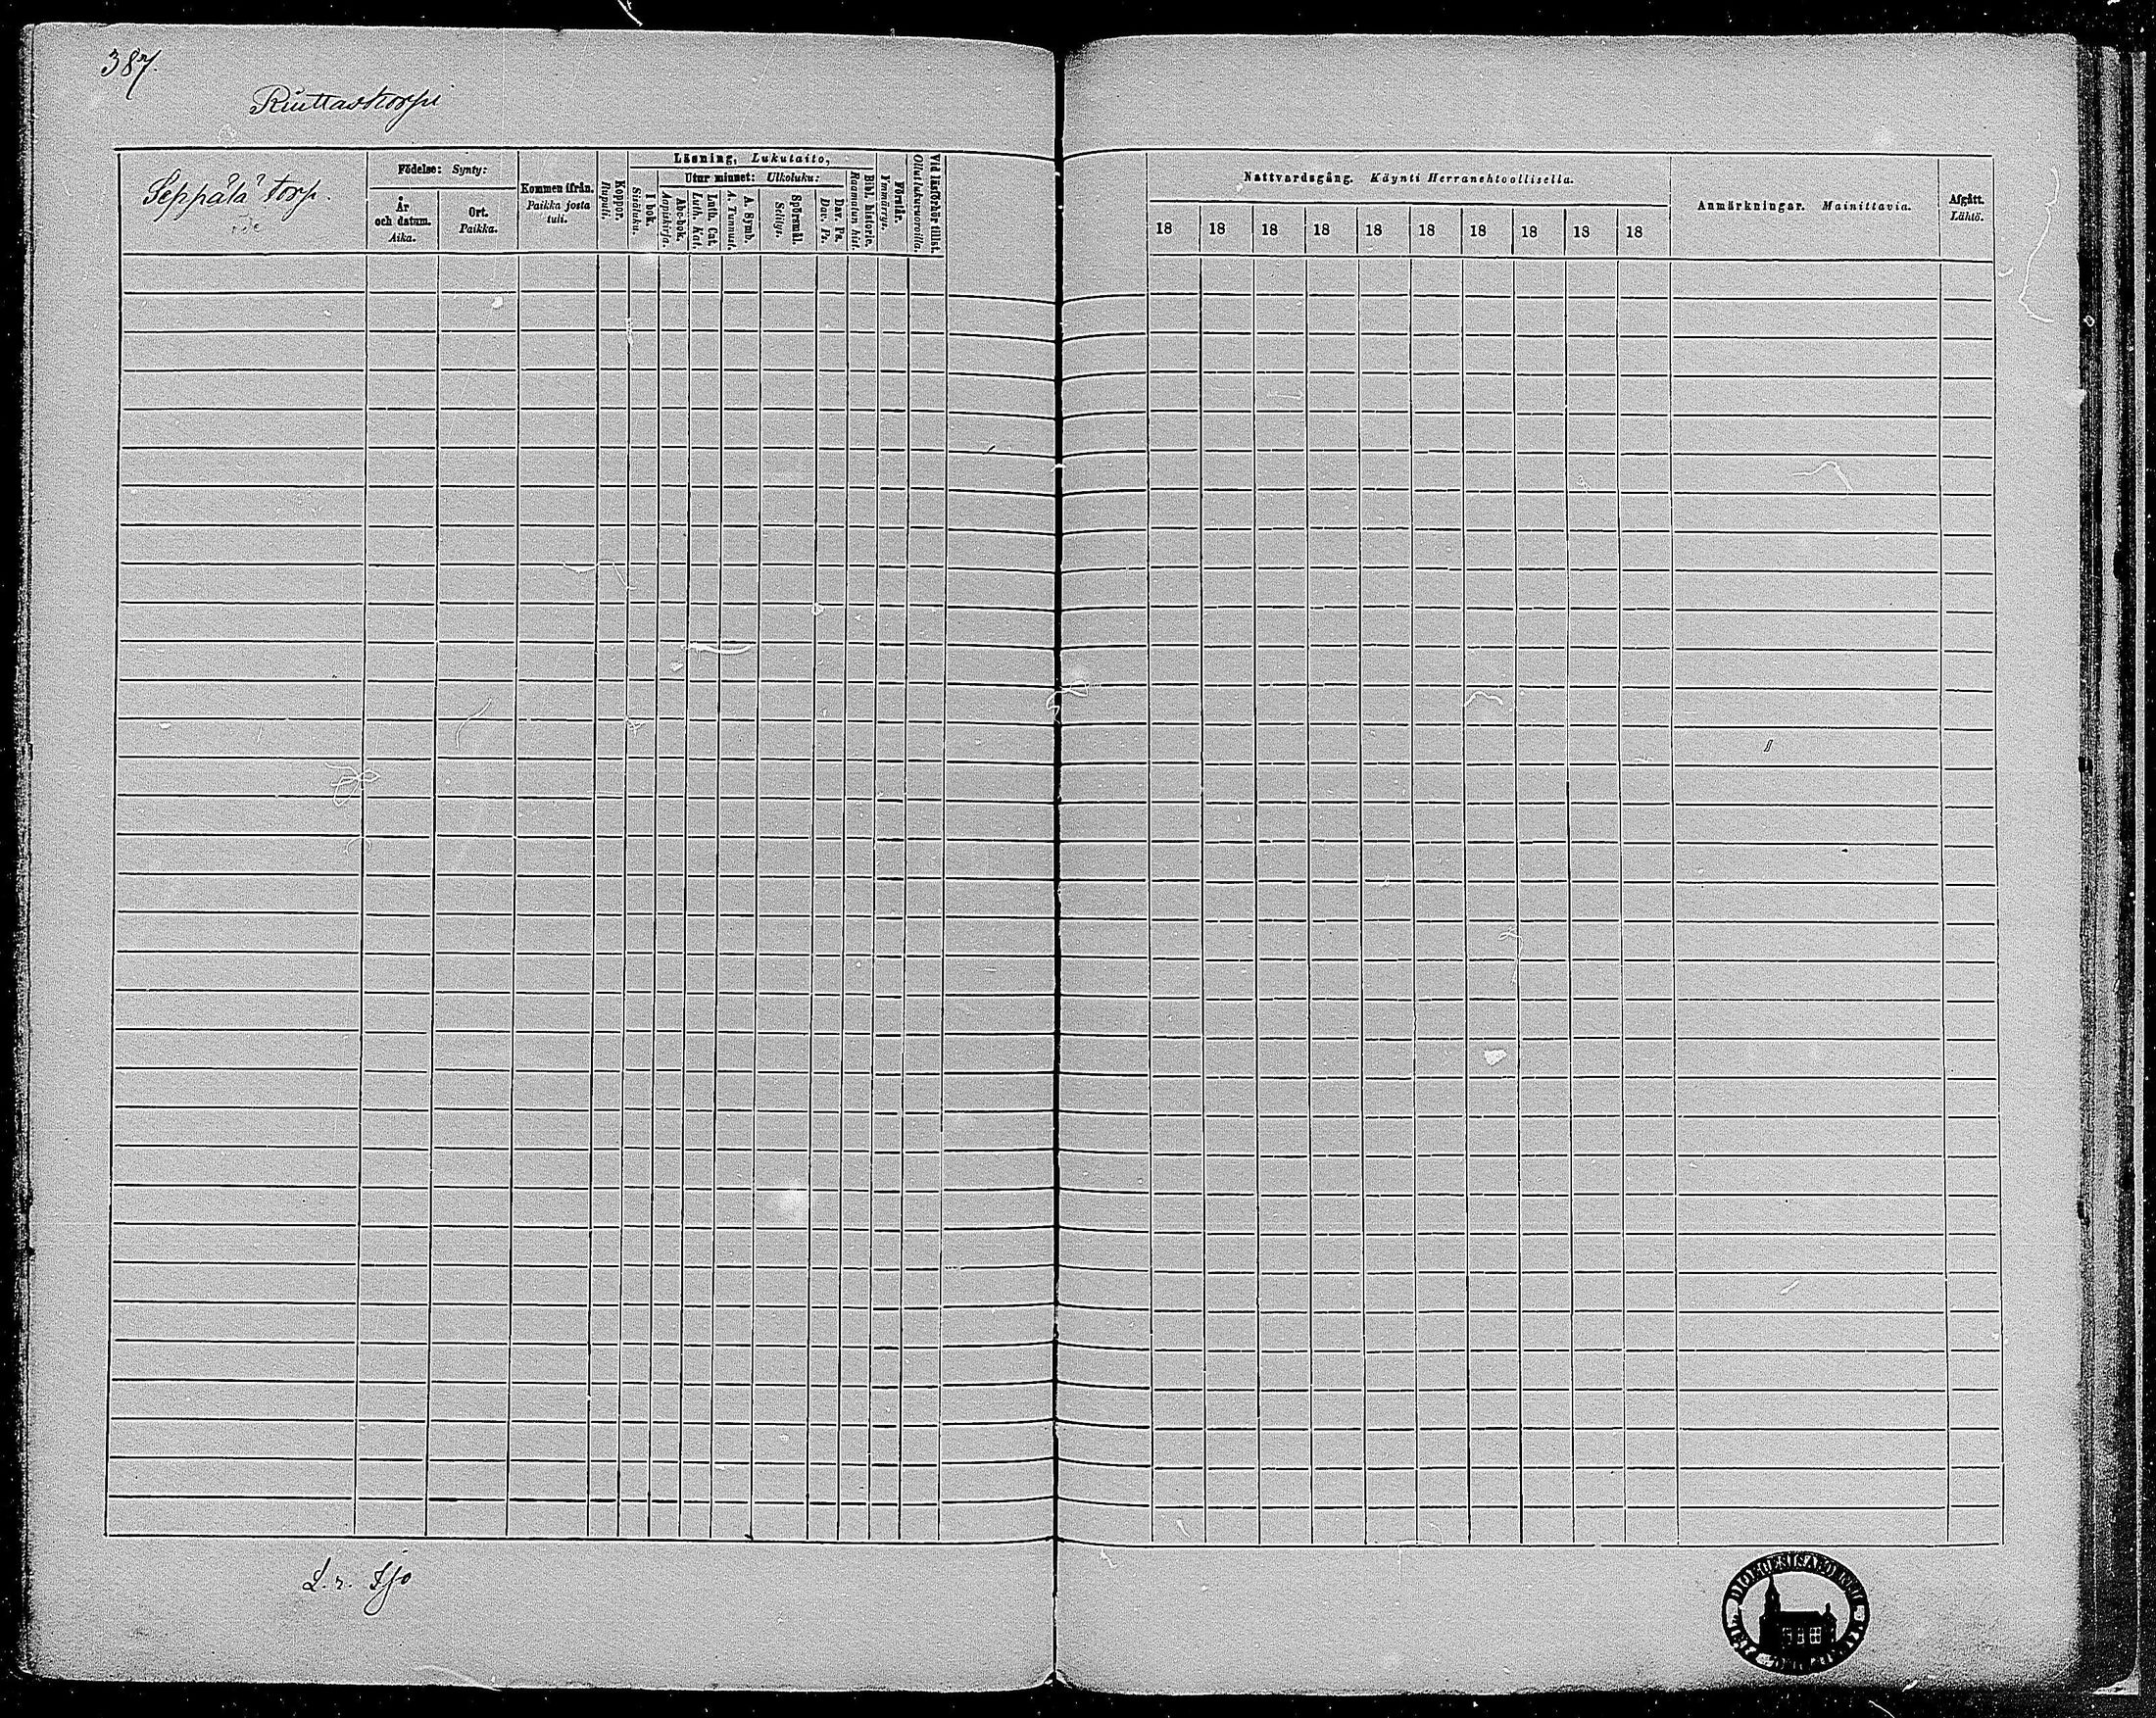 387.
Ruttaskorpi
Seppälä torp.
Födelse: Synty:
År och datum. Aika.
Ort. Paikka.
Kommen ifrån. Paikka josta tuli.
Koppor. Rupuli.
Läsning, Lukutaito,
I bok. Sisäluku.
Utur minnet: Ulkoluku:
Abc-bok. Aapiskirja.
Luth. Cat. Luth. Kat.
A. Symb. A. Tunnust.
Spörsmål. Selitys.
Dav. Ps. Dav. Ps.
Bibl. historie. Raamatun hist.
Förstår. Ymmärrys.
Vid läsförhör tillst. Ollut lukuvuoroilla.
Nattvardsgång. Käynti Herranehtoollisella.
18 18 18 18 18 18 18 18 18 18
Anmärkningar. Mainittavia.
Afgått. Lähtö.